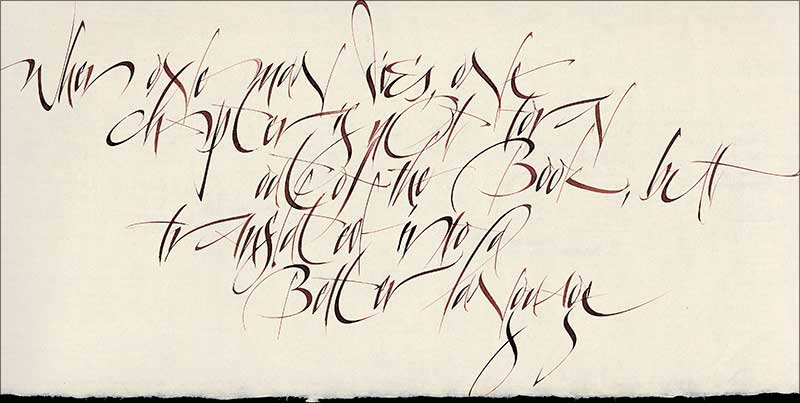 when one man dies, one
chapter is not torn
out of the Book, but
translated into a
Better language